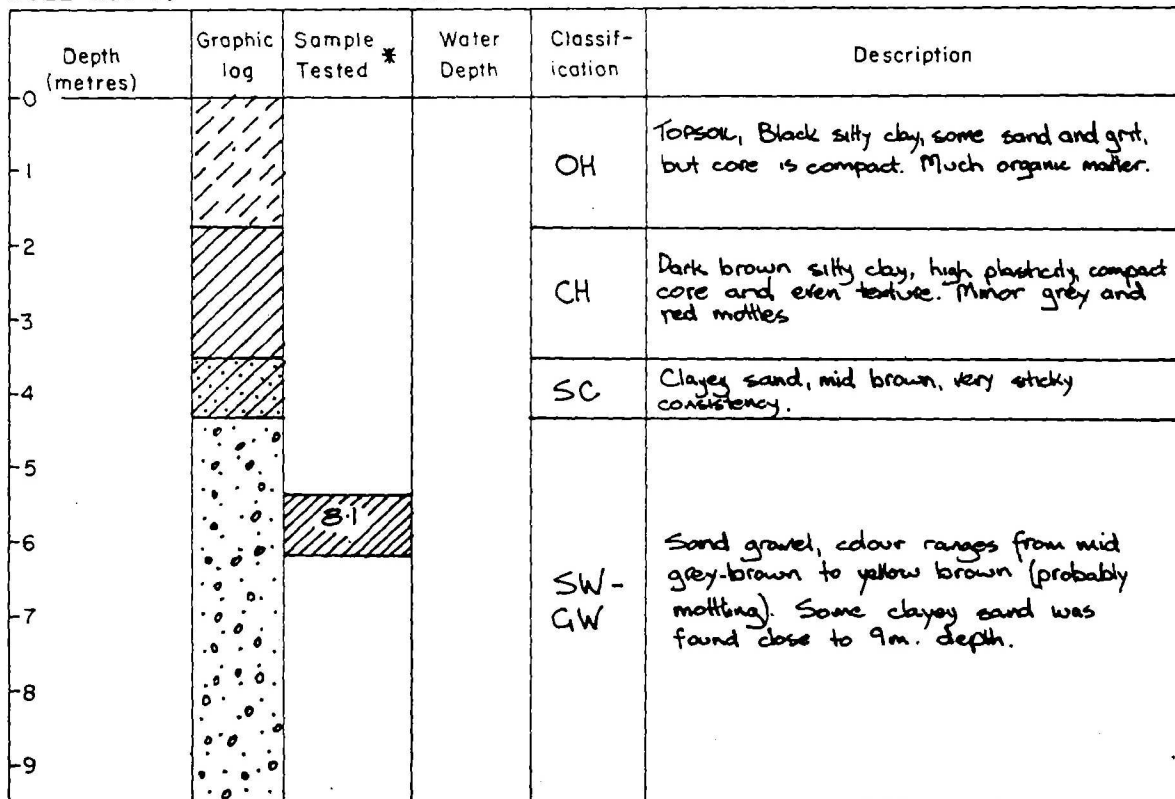 Depth
(metres)
Graphic
log
Sample *
Tested
Water
Depth
Classif-
ication
Description
0
1
2
3
4
5
6
7
8
9
OH
TOPSOIL, Black silty clay, some sand and grit,
but core is compact. Much organic matter.
CH
Dark brown silty clay, high plasticity, compact
core and even texture. Minor grey and
red mottles
SC
Clayey sand, mid brown, very sticky
consistency.
8.1
SW-
GW
Sand gravel, colour ranges from mid
grey-brown to yellow brown (probably
mottling). Some clayey sand was
found close to 9m. depth.